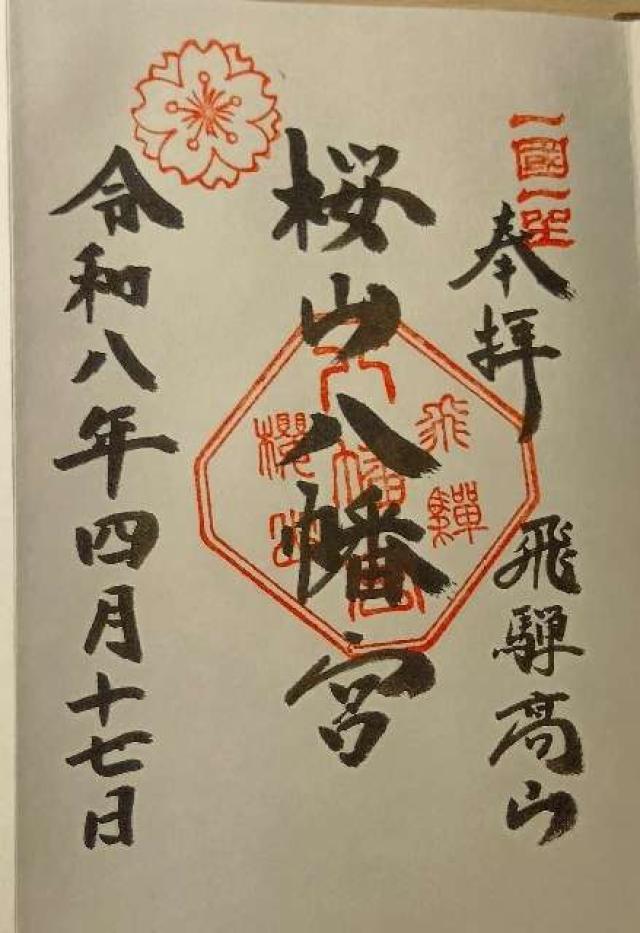 一國一社
奉拝
飛騨高山
桜山八幡宮
飛驒
八幡宮
櫻山
令和八年四月十七日